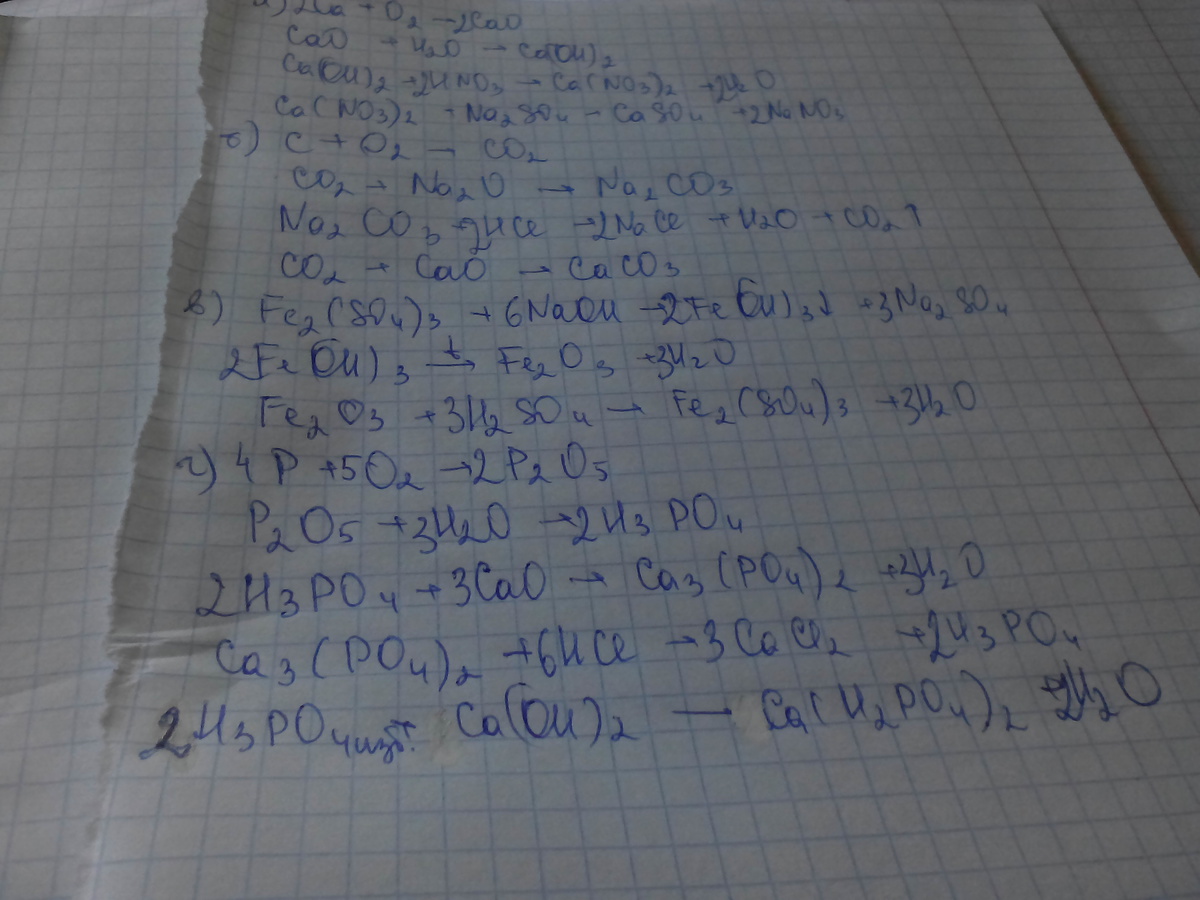 а) 2Ca + O2 → 2CaO
CaO + H2O → Ca(OH)2
Ca(OH)2 + 2HNO3 → Ca(NO3)2 + 2H2O
Ca(NO3)2 + Na2SO4 – CaSO4 + 2NaNO3
б) C + O2 → CO2
CO2 + Na2O → Na2CO3
Na2CO3 + 2HCl → 2NaCl + H2O + CO2↑
CO2 + CaO → CaCO3
в) Fe2(SO4)3 + 6NaOH → 2Fe(OH)3↓ + 3Na2SO4
2Fe(OH)3 t→ Fe2O3 + 3H2O
Fe2O3 + 3H2SO4 → Fe2(SO4)3 + 3H2O
г) 4P + 5O2 → 2P2O5
P2O5 + 3H2O → 2H3PO4
2H3PO4 + 3CaO → Ca3(PO4)2 + 3H2O
Ca3(PO4)2 + 6HCl → 3CaCl2 + 2H3PO4
2H3PO4изб. + Ca(OH)2 — Ca(H2PO4)2 + 2H2O